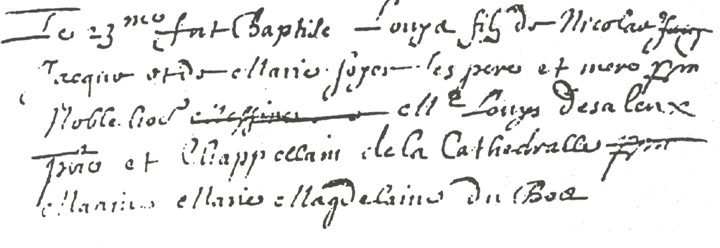 Le 23me fut Baptise Louys filz de Nicolas
Jacque et de Marie soyer ses pere et mere prm
Noble ho Me Louys Desaleux
pbre et Chappellain de la Cathedralle prm
Marine Marie Magdelaine Du Bos